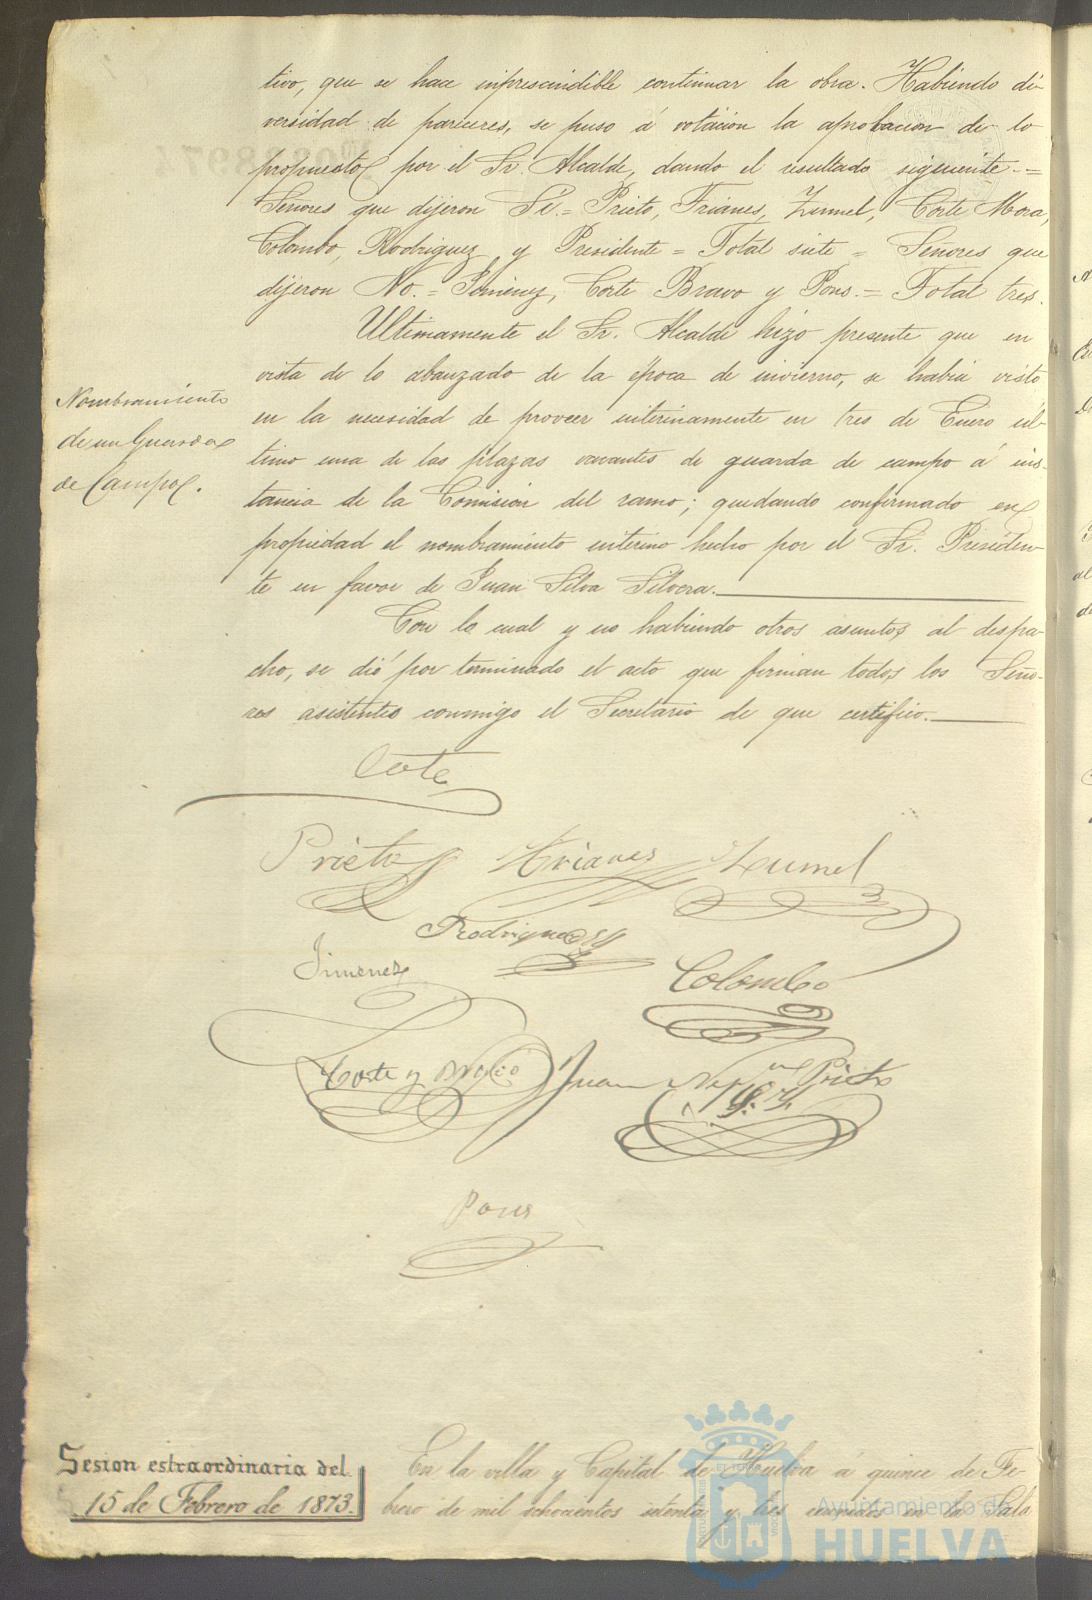 tivo, que se hace inprescindible continuar la obra. Habiendo di-
versidad de pareceres, se puso á votacion la aprobacion de lo
propuesto por el Sr. Alcalde, dando el resultado siguiente.=
Señores que dijeron Sí.= Prieto, Trianes, Zumel, Corte Mora,
Colombo, Rodriguez y Presidente = Total siete = Señores que
dijeron No.= Jimenez, Corte Bravo y Pons.= Total tres.
Ultimamente el Sr. Alcalde hizo presente que en
vista de lo abanzado de la época de invierno, se habia visto
Nombramiento
de un Guarda
de Campo.
en la necesidad de proveer interinamente en tres de Enero úl-
timo una de las plazas vacantes de guarda de campo á ins-
tancia de la Comision del ramo; quedando confirmado en
propiedad el nombramiento interino hecho por el Sr. Presiden-
te en favor de Juan Silva Silvera.
Con lo cual y no habiendo otros asuntos al despa-
cho, se dió por terminado el acto que firman todos los Seño-
res asistentes conmigo el Secretario de que certifico.
Corte
Prieto Trianes Zumel
Rodriguez
Jimenez
Colombo
Corte y Bravo
Juan Prieto
Pons
Sesion estraordinaria del
15 de Febrero de 1873.
En la villa y Capital de Huelva a quince de Fe-
brero de mil ochocientos setenta y tres reunidos en la Sala
Ayuntamiento de
HUELVA